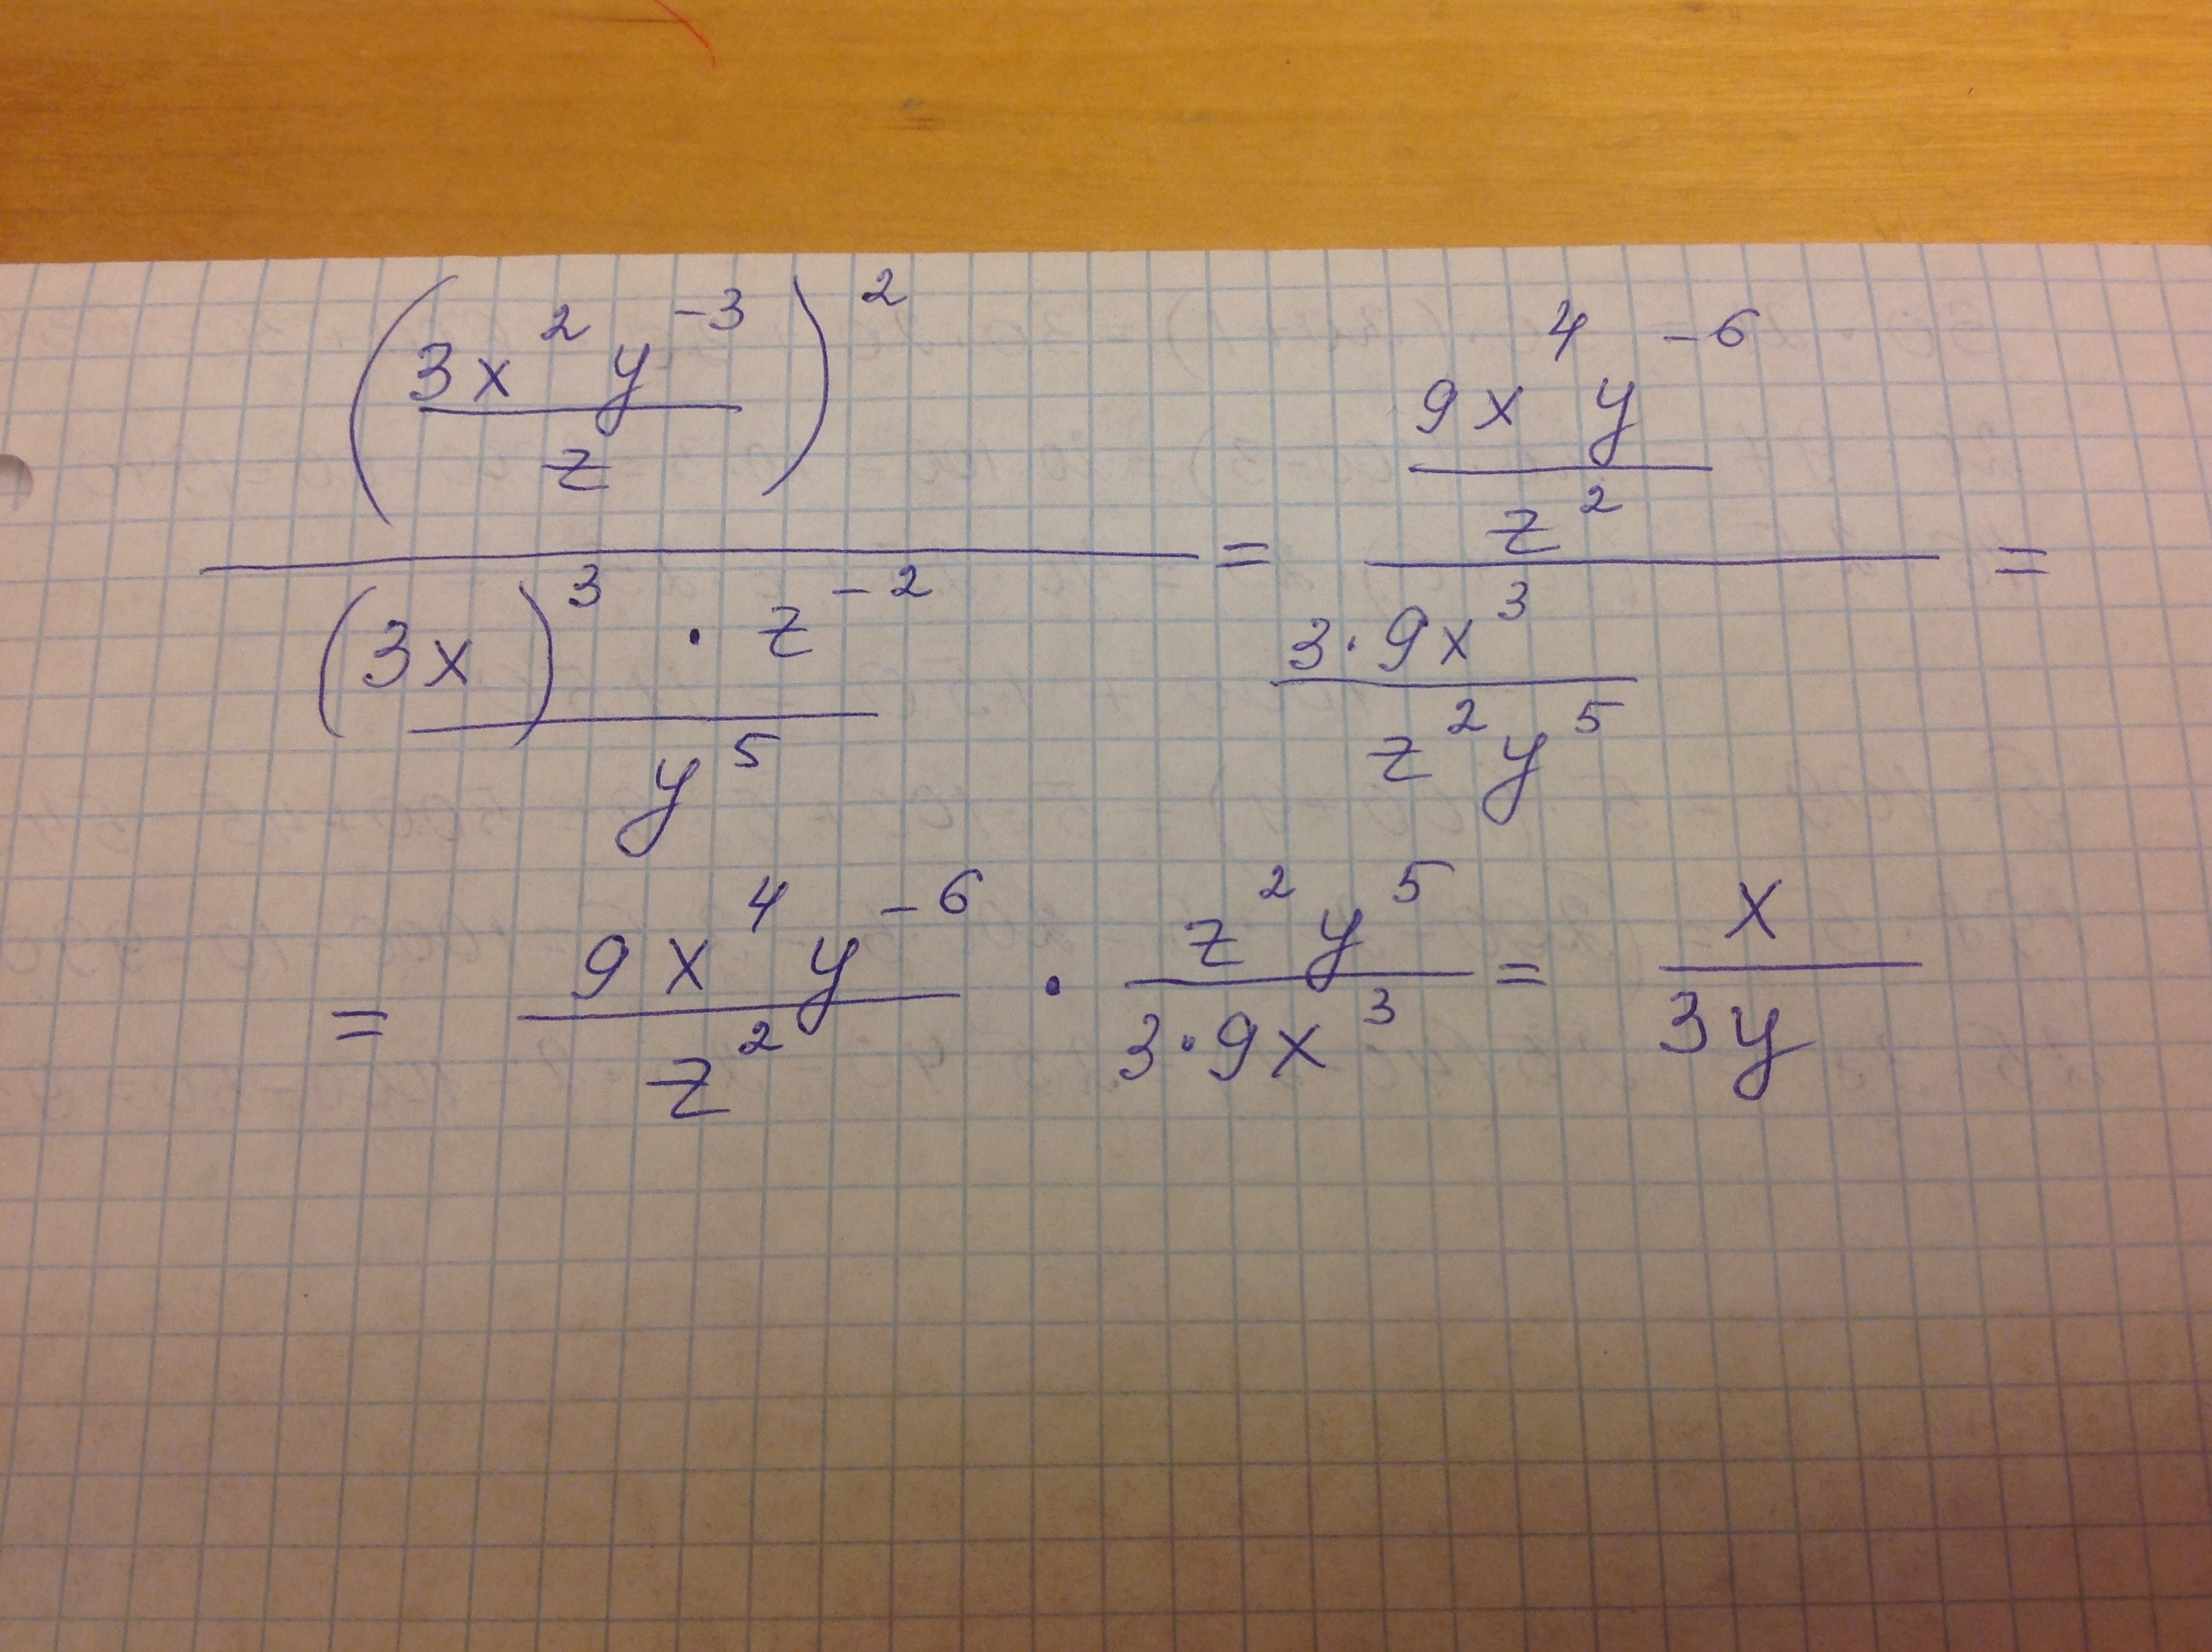 ((3x²y⁻³)/z)² / (((3x)³ · z⁻²)/y⁵) = (9x⁴y⁻⁶/z²) / (3·9x³/(z²y⁵)) =
= (9x⁴y⁻⁶)/z² · (z²y⁵)/(3·9x³) = x/(3y)